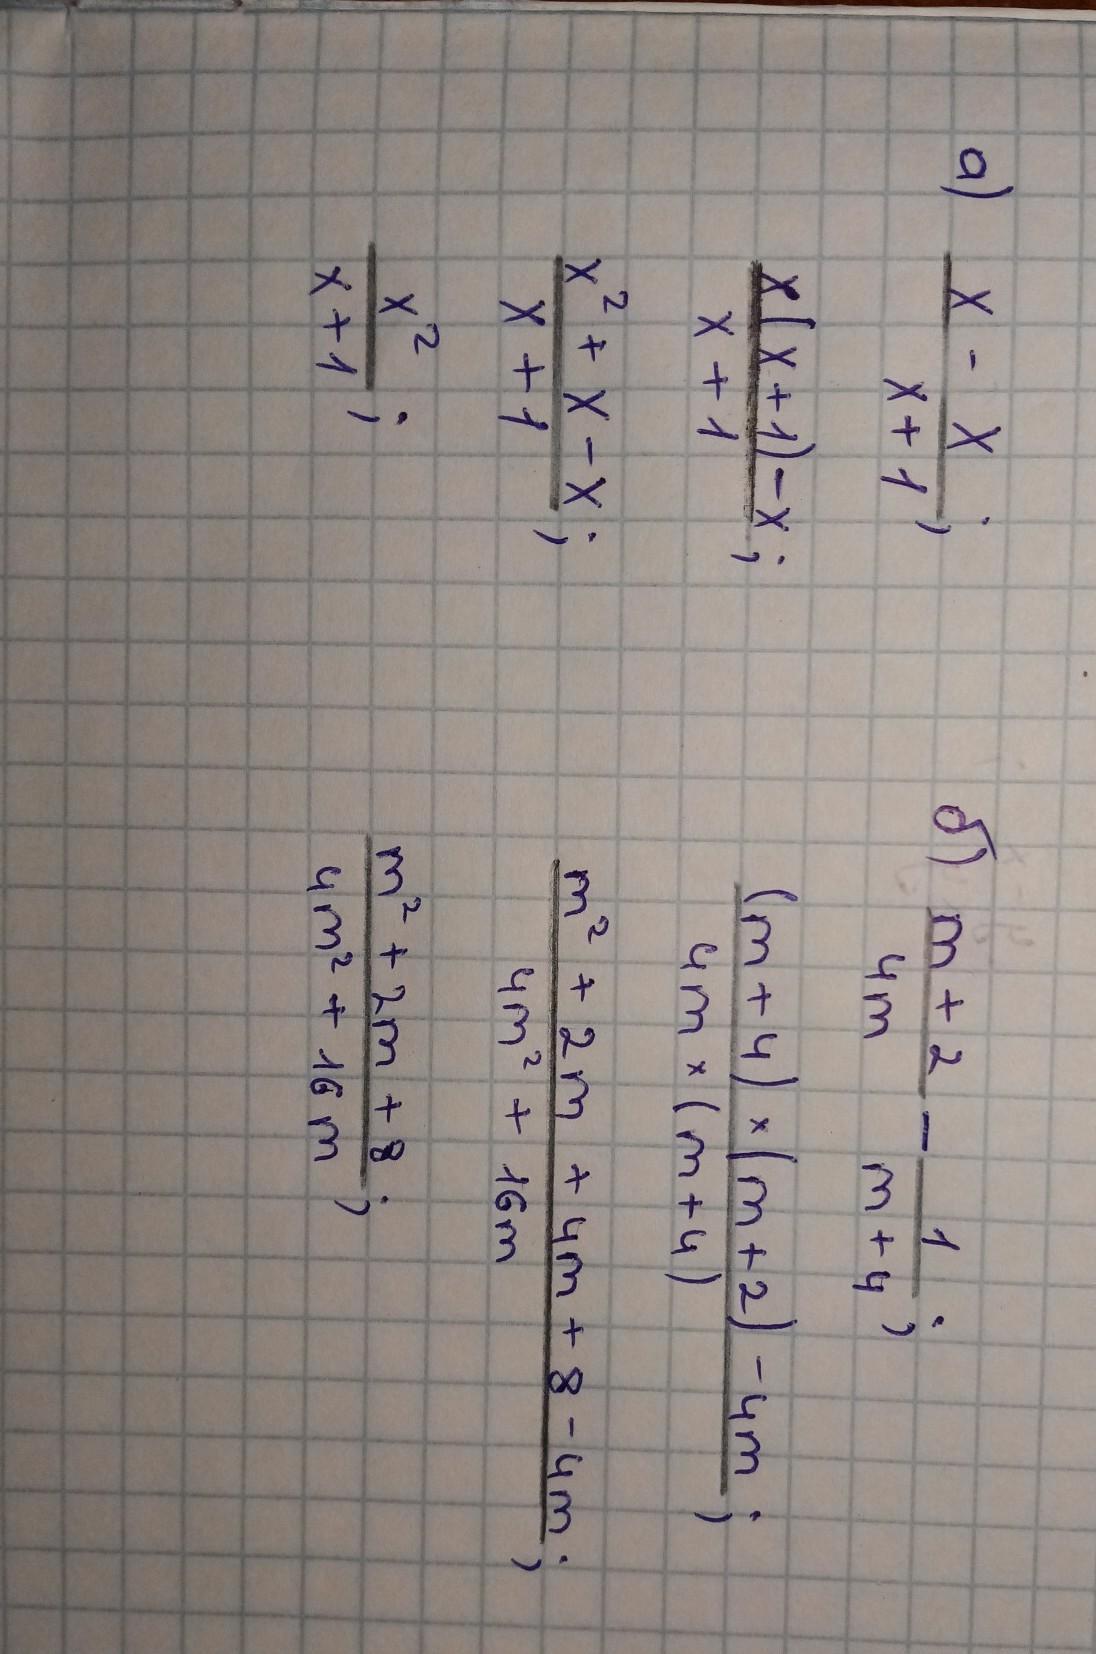 а) x - x/x+1 ;
x(x+1)-x/x+1 ;
x²+x-x/x+1 ;
x²/x+1 ;
б) m+2/4m - 1/m+4 ;
(m+4)×(m+2)-4m/4m×(m+4) ;
m²+2m+4m+8-4m/4m²+16m ;
m²+2m+8/4m²+16m ;